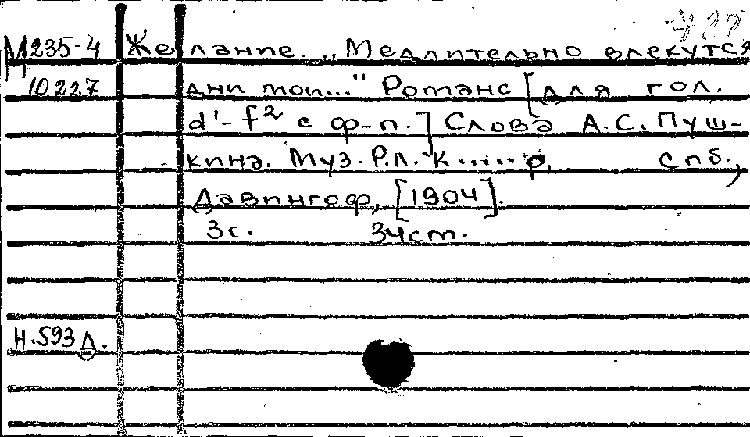 М235-4 Желание. „Медлительно влекутся
10227 дни мои..." Романс [для гол.
d'-f² с ф-п.] Слова А.С. Пуш-
кина. Муз. Р.Л. К.....р, Спб.,
Давингоф, [1904].
3с. 34см.
Н.593Д.